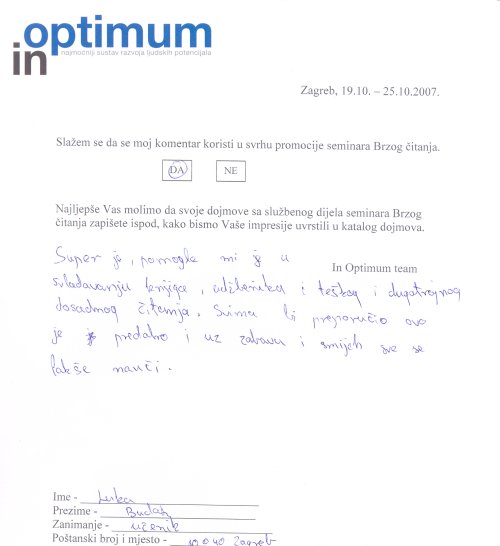 optimum
najmoćniji sustav razvoja ljudskih potencijala
in
Zagreb, 19.10. – 25.10.2007.
Slažem se da se moj komentar koristi u svrhu promocije seminara Brzog čitanja.
DA NE
Najljepše Vas molimo da svoje dojmove sa službenog dijela seminara Brzog
čitanja zapišete ispod, kako bismo Vaše impresije uvrstili u katalog dojmova.
In Optimum team
Super je, pomogle mi u
svladavanju knjiga, udžbenika i teškog i dugotrajnog
dosadnog čitanja. Svima bi preporučio ovo
je predobro i uz zabavu i smijeh sve se
lakše nauči.
Ime - Luka
Prezime - Budak
Zanimanje - učenik
Poštanski broj i mjesto - 10040 Zagreb